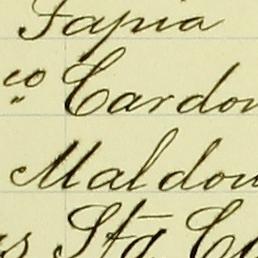 Tapia
co Cardon
Maldon
as Sta Ca